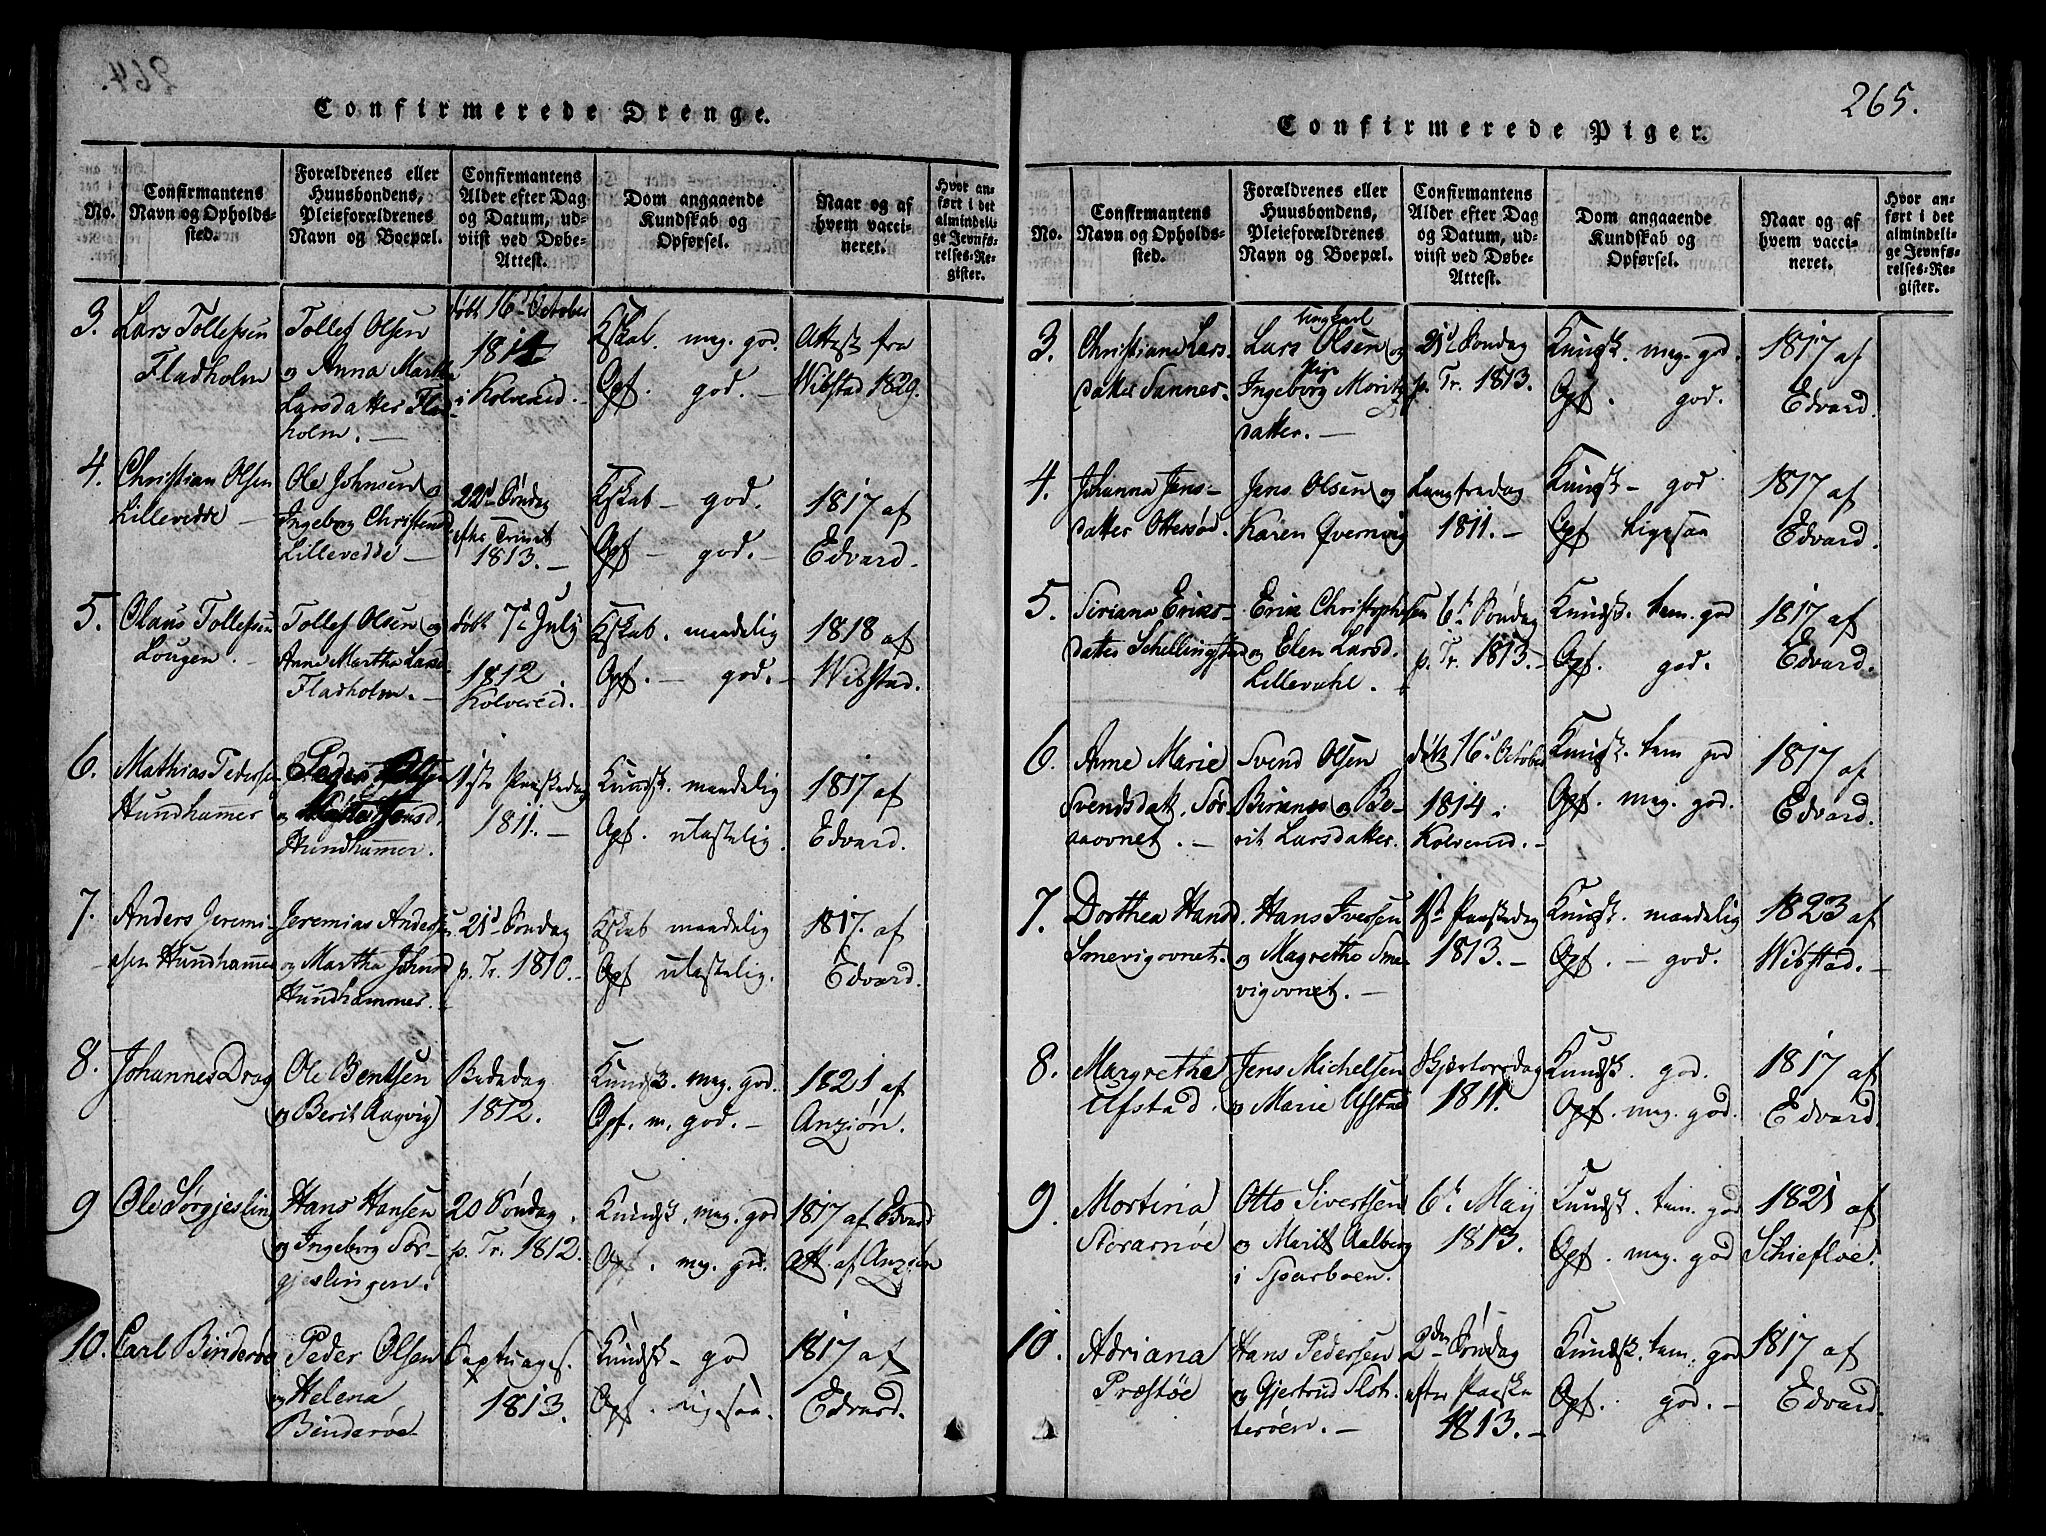 264.
Confirmerede Drenge.
No.
Confirmantens
Navn og Opholds-
sted.
Forældrenes eller
Huusbondens,
Pleieforældrenes
Navn og Boepæl.
Confirmantens
Alder efter Dag
og Datum, ud-
viist ved Døbe-
Attest.
Dom angaaende
Kundskab og
Opførsel.
Naar og af
hvem vacci-
neret.
Hvor an-
ført i det
almindeli-
ge Jevnfø-
relses-Re-
gister.
3.
Lars Tollefsen
Fladholm
Tollef Olsen
og Anna Martha
Larsdatter Flad-
holm.
født 16d October
1814
i Kolvereid.
Kskab. meg. god.
Opf. god.
Attest fra
Wibstad 1829.
4.
Christian Olsen
Lillevedde
Ole Johnsen og
Ingeborg Christensd
Lillevedde
22d Søndag
efter Trinit
1813.
Kskab - god.
Opf - god.
1817 af
Edvard.
5.
Olaus Tollefsen
Lougen.
Tollef Olsen og
Anne Martha Larsd
Fladholm.
født 7d July
1812.
Kolvereid.
Kskab. maadelig
Opf. - god.
1818 af
Wibstad.
6.
Mathias Pedersen
Hundhamer
Peder
og
Hundhamer.
1ste Paaskedag
1811.
Kundsk. maadelig
Opf. utastelig.
1817 af
Edvard.
7.
Anders Jeremi-
asen Hundhamer
Jeremias Andersen
og Martha Johnsd
Hundhammer.
21d Søndag
p. Tr. 1810.
Kskab maadelig
Opf utastelig.
1817. af
Edvard.
8.
Johannes Drag
Ole Bentsen
og Berit Aagvig
Bededag
1812.
Kundsk. meg. god.
Opf. m. god.
1821 af
Anzjøn.
9
Ole Sørgjeslin
Hans Hansen
og Ingeborg Sør-
gjeslingen.
20 Søndag
p. Tr. 1812.
Kundsk. meg. god
Opf. meg. god.
1817 af Edvard
att. af Anzjøn
10.
Carl Binderøe
Peder Olsen
og Helena
Binderøe
Septuages.
1813.
Kundsk - god
Opf. ligesaa.
1817 af
Edvard.
265.
Confirmerede Piger.
No.
Confirmantens
Navn og Opholds-
sted.
Forældrenes eller
Huusbondens,
Pleieforældrenes
Navn og Boepæl.
Confirmantens
Alder efter Dag
og Datum, ud-
viist ved Døbe-
Attest.
Dom angaaende
Kundskab og
Opførsel.
Naar og af
hvem vacci-
neret.
Hvor an-
ført i det
almindeli-
ge Jevnfø-
relses-Re-
gister.
3.
Christiane Lars-
datter Sannes.
Ungkarl
Lars Olsen og
Pige
Ingeborg Moritz
datter.
21d Søndag
p. Tr. 1813.
Kundsk. meg. god.
Opf. god.
1817 af
Edvard.
4.
Johanna Jens-
datter Ottersøe.
Jens Olsen og
Karen Qverning
Langfredag
1811.
Kundsk - god
Opf ligesaa
1817 af
Edvard.
5.
Siriana Eriks-
datter Schellingstad
Erik Christophersen
og Elen Larsd.
Lillevahl.
6te Søndag
p. Tr. 1813.
Kundsk. tem. god
Opf. god.
1817 af
Edvard.
6.
Anne Marie
Svendsdat. Sør
aaovnet.
Svend Olsen
og Be-
rit Larsdatter.
født 16d October
1814 i
Kolvereid.
Kundsk. tem god
Opf. meg. god.
1817 af
Edvard.
7.
Dorthea Hansd.
Smevigovnet.
Hans Iversen
og Magrethe Sme-
vigovnet.
1ste Paaskedag
1813.
Kundsk. maadelig
Opf. - god.
1823 af
Wibstad.
8.
Margrethe
Ufstad.
Jens Michelsen
og Marie Ufstad
Skjærtorsdag
1811.
Kundsk. god.
Opf. meg. god.
1817 af
Edvard.
9.
Mortina
Storarnøe
Otto Sivertsen
og Marit Aalberg
i Sparboen.
6te Maij
1813.
Kundsk. tem. god
Opf. meg. god
1821 af
Schiefloe.
10.
Adriana
Præstøe
Hans Pedersen
og Gjertrud Slot-
terøen.
2den Søndag
efter Paaske
1813.
Kundsk. tem. god
Opf. god.
1817 af
Edvard.